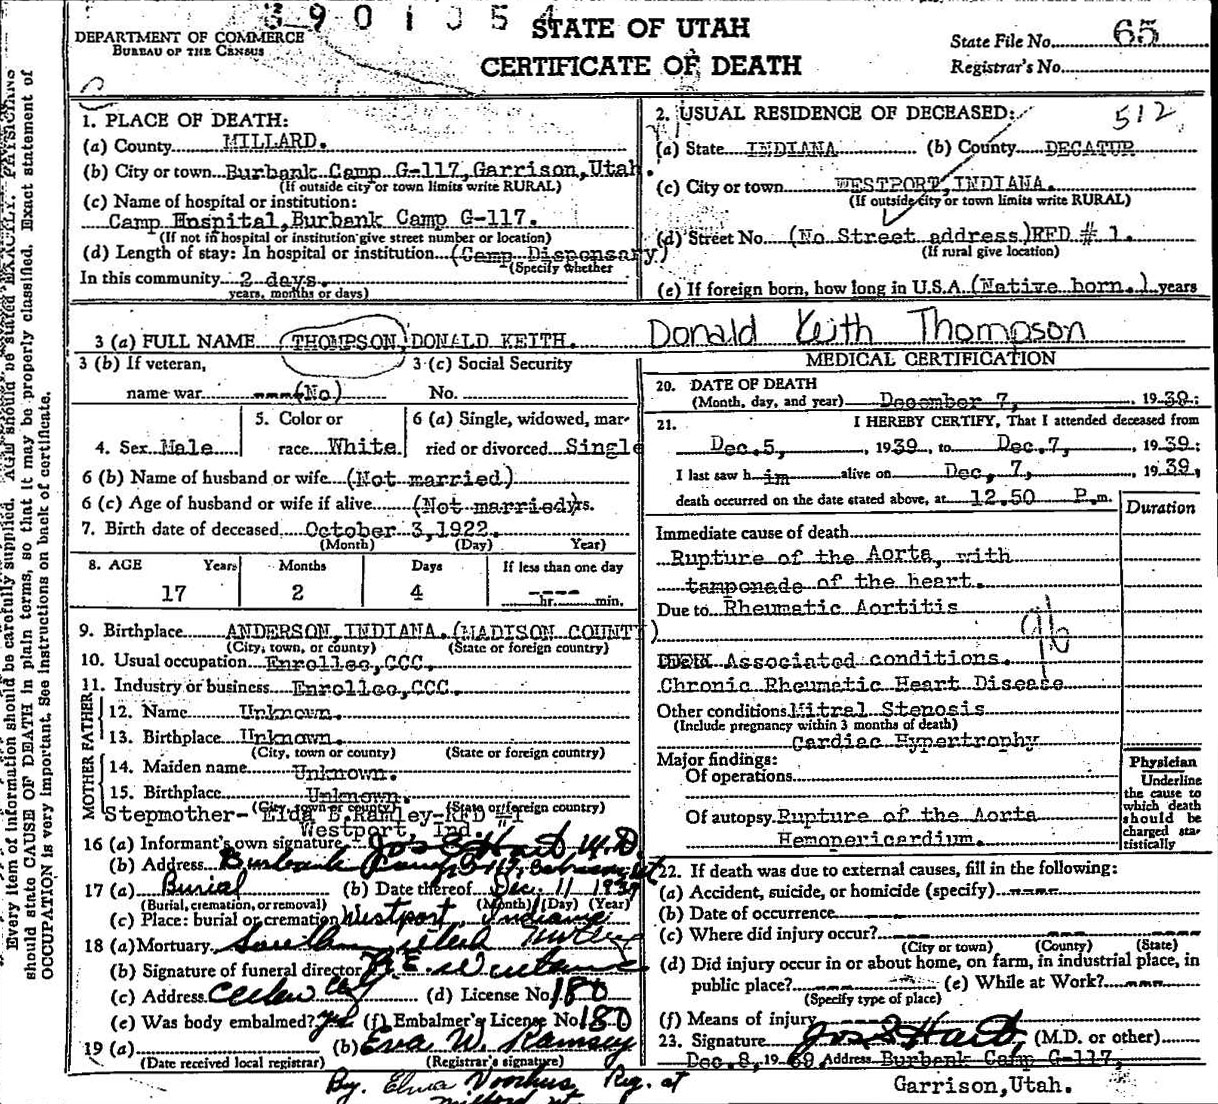 3901054
DEPARTMENT OF COMMERCE
BUREAU OF THE CENSUS
STATE OF UTAH
CERTIFICATE OF DEATH
State File No. 65
Registrar's No.
Every item of information should be carefully supplied. AGE should be stated EXACTLY. PHYSICIANS
should state CAUSE OF DEATH in plain terms, so that it may be properly classified. Exact statement of
OCCUPATION is very important. See instructions on back of certificate.
1. PLACE OF DEATH:
(a) County MILLARD.
(b) City or town Burbank Camp G-117, Garrison, Utah.
(If outside city or town limits write RURAL)
(c) Name of hospital or institution:
Camp Hospital, Burbank Camp G-117.
(If not in hospital or institution give street number or location)
(d) Length of stay: In hospital or institution (Camp Dispensary)
(Specify whether
In this community 2 days.
years, months or days)
2. USUAL RESIDENCE OF DECEASED: 512
(a) State INDIANA (b) County DECATUR
(c) City or town WESTPORT, INDIANA.
(If outside city or town limits write RURAL)
(d) Street No. (No Street address) RFD # 1.
(If rural give location)
(e) If foreign born, how long in U.S.A. (Native born.) years
3 (a) FULL NAME THOMPSON, DONALD KEITH. Donald Keith Thompson
3 (b) If veteran,
name war ---(No)
3 (c) Social Security
No.
4. Sex Male
5. Color or
race White.
6 (a) Single, widowed, mar-
ried or divorced Single
6 (b) Name of husband or wife (Not married)
6 (c) Age of husband or wife if alive (Not married) yrs.
7. Birth date of deceased October 3, 1922.
(Month) (Day) Year)
8. AGE Years Months Days If less than one day
17 2 4 ---- hr. min.
9. Birthplace ANDERSON, INDIANA. (MADISON COUNTY)
(City, town, or county) (State or foreign country)
10. Usual occupation Enrollee, CCC.
11. Industry or business Enrollee, CCC.
FATHER
12. Name Unknown.
13. Birthplace Unknown.
(City, town or county) (State or foreign country)
MOTHER
14. Maiden name Unknown.
15. Birthplace Unknown.
(City, town or county) (State or foreign country)
Stepmother- Elda B. Ramley-RFD #1
Westport, Ind.
16 (a) Informant's own signature Jos S Hart M.D
(b) Address Burbank Camp G-117,
17 (a) Burial (b) Date thereof Dec. 11 1939
(Burial, cremation, or removal) (Month) (Day) (Year)
(c) Place: burial or cremation Westport, Indiana
18 (a) Mortuary Southern Utah
(b) Signature of funeral director
(c) Address Cedar City (d) License No. 180
(e) Was body embalmed? yes (f) Embalmer's License No. 180
19 (a) (b) Eva W. Ramsey
(Date received local registrar) (Registrar's signature)
By. Elma Voorhus Reg. at
Milford Ut.
MEDICAL CERTIFICATION
20. DATE OF DEATH
(Month, day, and year) December 7, 1939.
21. I HEREBY CERTIFY, That I attended deceased from
Dec. 5, 1939, to Dec. 7, 1939.
I last saw him alive on Dec, 7, 1939,
death occurred on the date stated above, at 12.50 P.m.
Duration
Immediate cause of death
Rupture of the Aorta, with
tamponade of the heart.
Due to Rheumatic Aortitis
96
Associated conditions.
Chronic Rheumatic Heart Disease
Other conditions Mitral Stenosis
(Include pregnancy within 3 months of death)
Cardiac Hypertrophy
Major findings:
Of operations
Of autopsy Rupture of the Aorta
Hemopericardium.
Physician
Underline
the cause to
which death
should be
charged sta-
tistically
22. If death was due to external causes, fill in the following:
(a) Accident, suicide, or homicide (specify) ----
(b) Date of occurrence ----
(c) Where did injury occur? ---- ---- ----
(City or town) (County) (State)
(d) Did injury occur in or about home, on farm, in industrial place, in
public place? ---- (e) While at Work? ----
(Specify type of place)
(f) Means of injury
23. Signature Jos S Hart, (M.D. or other)
Dec. 8, 1939 Address Burbank Camp G-117,
Garrison, Utah.